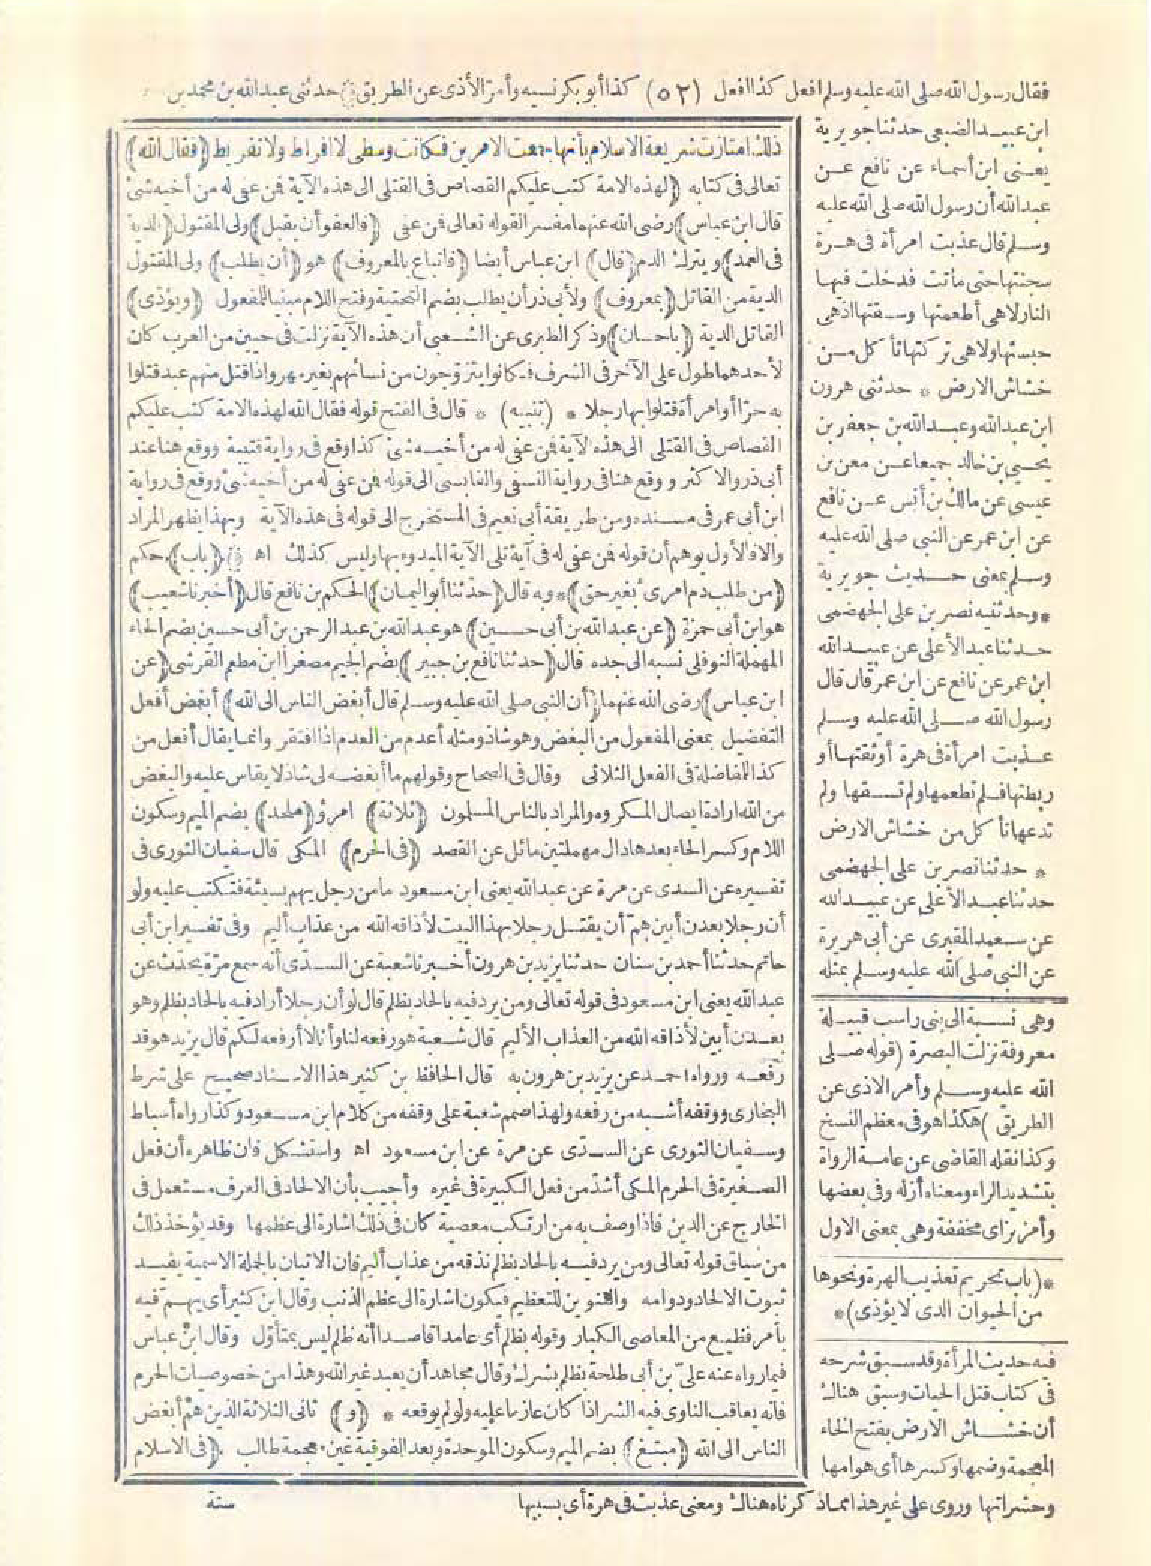 فقال رسول الله صلى الله عليه وسلم افعل كذا افعل (٥٢) كذا أبو بكر نسيه وأمر الأذى عن الطريق حدثنى عبد الله بن محمد بن
ابن عبيد الضبعى حدثنا جويرية
يعنى ابن أسماء عن نافع عن
عبد الله أن رسول الله صلى الله عليه
وسلم قال عذبت امرأة فى هرة
سجنتها حتى ماتت فدخلت فيها
النار لا هى أطعمتها وسقتها اذ هى
حبستها ولا هى تركتها تأكل من
خشاش الارض * حدثنى هرون
ابن عبد الله وعبد الله بن جعفر بن
يحيى بن خالد جميعا عن معن بن
عيسى عن مالك بن أنس عن نافع
عن ابن عمر عن النبى صلى الله عليه
وسلم بمعنى حديث جويرية
* وحدثنيه نصر بن على الجهضمى
حدثنا عبد الأعلى عن عبيد الله
ابن عمر عن نافع عن ابن عمر قال قال
رسول الله صلى الله عليه وسلم
عذبت امرأة فى هرة أوثقتها أو
ربطتها فلم تطعمها ولم تسقها ولم
تدعها تأكل من خشاش الارض
* حدثنا نصر بن على الجهضمى
حدثنا عبد الأعلى عن عبيد الله
عن سعيد المقبرى عن أبى هريرة
عن النبى صلى الله عليه وسلم بمثله
وهى نسبة الى بنى راسب قبيلة
معروفة نزلت البصرة (قوله صلى
الله عليه وسلم وأمر الاذى عن
الطريق) هكذا هو فى معظم النسخ
وكذا نقله القاضى عن عامة الرواة
بتشديد الراء ومعناه أزله وفى بعضها
وأمز بزاى مخففة وهى بمعنى الاول
*(باب تحريم تعذيب الهرة ونحوها
من الحيوان الذى لا يؤذى)*
فيه حديث المرأة وقد سبق شرحه
فى كتاب قتل الحيات وسبق هناك
أن خشاش الارض بفتح الخاء
المعجمة وضمها وكسرها أى هوامها
وحشراتها وروى على غير هذا مما ذكرناه هناك ومعنى عذبت فى هرة أى بسببها
ذلك امتازت شريعة الاسلام بأنها جمعت الامرين فكانت وسطى لا افراط ولا تفريط (فقال الله)
تعالى فى كتابه (لهذه الامة كتب عليكم القصاص فى القتلى الى هذه الآية فمن عفى له من أخيه شئ
قال ابن عباس) رضى الله عنهما مفسرا لقوله تعالى فمن عفى (فالعفو أن يقبل) ولى المقتول (الدية
فى العمد) ويترك الدم (قال) ابن عباس أيضا (فاتباع بالمعروف) هو (أن يطلب) ولى المقتول
الدية من القاتل (بمعروف) ولأبى ذر أن يطلب بضم التحتية وفتح اللام مبنيا للمفعول (ويؤدى)
القاتل الدية (باحسان) وذكر الطبرى عن الشعبى أن هذه الآية نزلت فى حيين من العرب كان
لأحدهما طول على الآخر فى الشرف فكانوا يتزوجون من نسائهم بغير مهر واذا قتل منهم عبد قتلوا
به حرا أو امرأة قتلوا بها رجلا * (تنبيه) * قال فى الفتح قوله فقال الله لهذه الامة كتب عليكم
القصاص فى القتلى الى هذه الآية فمن عفى له من أخيه شئ كذا وقع فى رواية قتيبة ووقع هنا عند
أبى ذر والاكثر ووقع هنا فى رواية النسفى والقابسى الى قوله فمن عفى له من أخيه شئ ووقع فى رواية
ابن أبى عمر فى مسنده ومن طريقة أبى نعيم فى المستخرج الى قوله فى هذه الآية وبهذا يظهر المراد
والا فالأول يوهم أن قوله فمن عفى له فى آية تلى الآية المبدوء بها وليس كذلك اه (باب) حكم
(من طلب دم امرئ بغير حق) * وبه قال (حدثنا أبو اليمان) الحكم بن نافع قال (أخبرنا شعيب)
هو ابن أبى حمزة (عن عبد الله بن أبى حسين) هو عبد الله بن عبد الرحمن بن أبى حسين بضم الحاء
المهملة النوفلى نسبه الى جده قال (حدثنا نافع بن جبير) بضم الجيم مصغرا ابن مطعم القرشى (عن
ابن عباس) رضى الله عنهما (أن النبى صلى الله عليه وسلم قال أبغض الناس الى الله) أبغض أفعل
التفضيل بمعنى المفعول من البغض وهو شاذ ومثله أعدم من العدم اذا افتقر وانما يقال أفعل من
كذا للمفاضلة فى الفعل الثلاثى وقال فى الصحاح وقولهم ما أبغضه لى شاذ لا يقاس عليه والبغض
من الله ارادة ايصال المكروه والمراد بالناس المسلمون (ثلاثة) امرؤ (ملحد) بضم الميم وسكون
اللام وكسر الحاء بعدها دال مهملتين مائل عن القصد (فى الحرم) المكى قال سفيان الثورى فى
تفسيره عن السدى عن مرة عن عبد الله يعنى ابن مسعود ما من رجل يهم بسيئة فتكتب عليه ولو
أن رجلا بعدن أبين هم أن يقتل رجلا بهذا البيت لأذاقه الله من عذاب أليم وفى تفسير ابن أبى
حاتم حدثنا أحمد بن سنان حدثنا يزيد بن هرون أخبرنا شعبة عن السدى أنه سمع مرة يحدث عن
عبد الله يعنى ابن مسعود فى قوله تعالى ومن يرد فيه بالحاد بظلم قال لو أن رجلا أراد فيه بالحاد بظلم وهو
بعدن أبين لأذاقه الله من العذاب الأليم قال شعبة هو رفعه لنا وأنا لا أرفعه لكم قال يزيد هو قد
رفعه ورواه احمد عن يزيد بن هرون به قال الحافظ بن كثير هذا الاسناد صحيح على شرط
البخارى ووقفه أشبه من رفعه ولهذا صمم شعبة على وقفه من كلام ابن مسعود وكذا رواه أسباط
وسفيان الثورى عن السدى عن مرة عن ابن مسعود اه واستشكل فان ظاهره أن فعل
الصغيرة فى الحرم المكى أشد من فعل الكبيرة فى غيره وأجيب بأن الالحاد فى العرف مستعمل فى
الخارج عن الدين فاذا وصف به من ارتكب معصية كان فى ذلك اشارة الى عظمها وقد يؤخذ ذلك
من سياق قوله تعالى ومن يرد فيه بالحاد بظلم نذقه من عذاب أليم فان الاتيان بالجملة الاسمية يفيد
ثبوت الالحاد ودوامه والتنوين للتعظيم فيكون اشارة الى عظم الذنب وقال ابن كثير أى يهم فيه
بأمر فظيع من المعاصى الكبار وقوله بظلم أى عامدا قاصدا أنه ظلم ليس بمتأول وقال ابن عباس
فيما رواه عنه على بن أبى طلحة بظلم بشرك وقال مجاهد أن يعبد غير الله وهذا من خصوصيات الحرم
فانه يعاقب الناوى فيه الشر اذا كان عازما عليه ولو لم يوقعه * (و) ثانى الثلاثة الذين هم أبغض
الناس الى الله (مبتغ) بضم الميم وسكون الموحدة وبعد الفوقية غين معجمة طالب (فى الاسلام
سنة